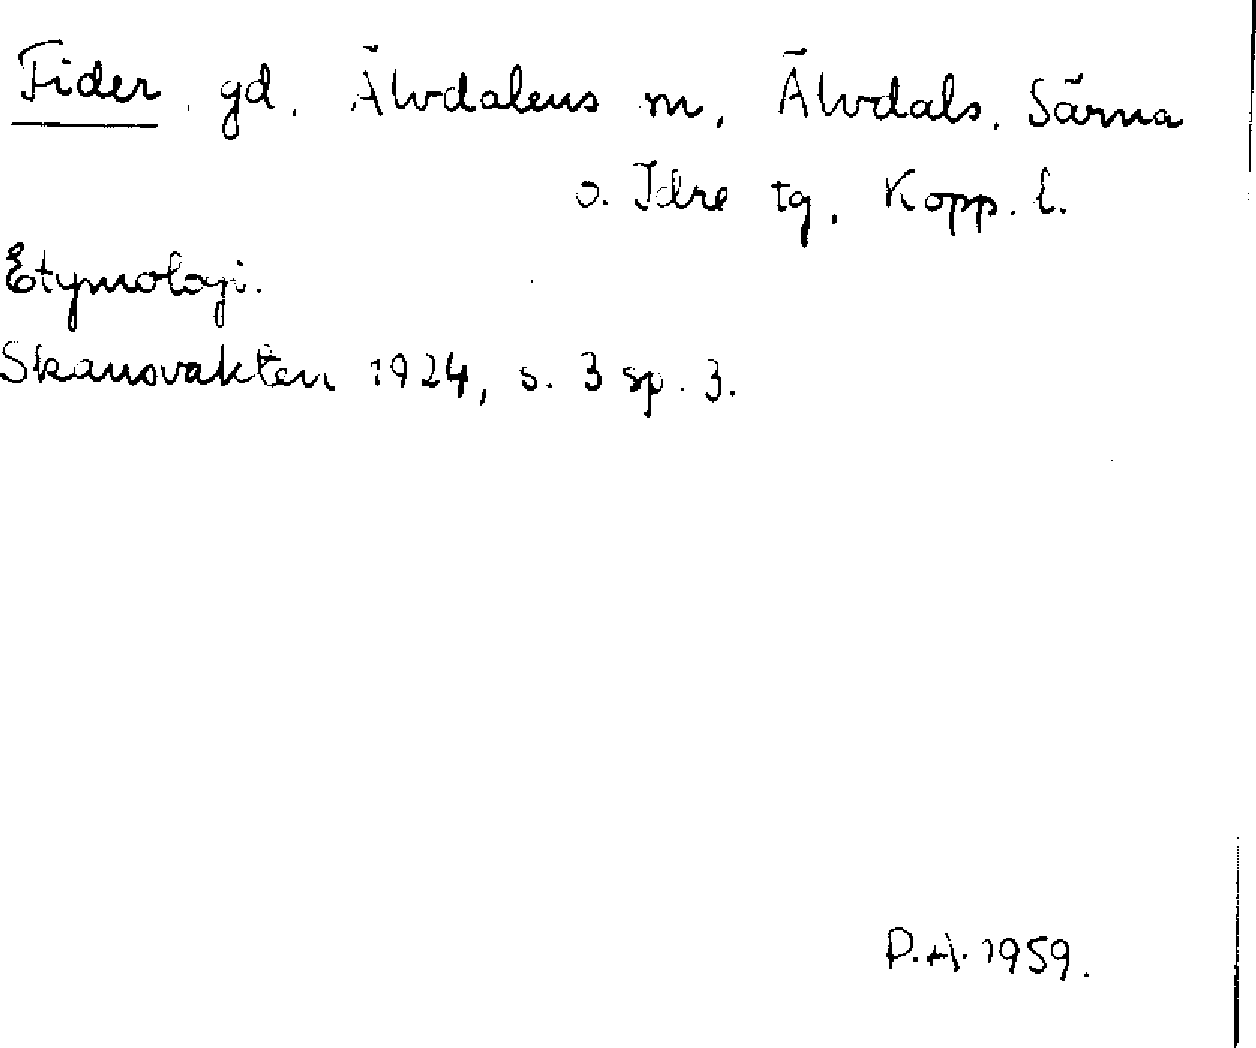 Fider gd. Älvdalens m, Älvdals, Särna
o. Idre tg, Kopp. l.
Etymologi.
Skansvakten 1924, s. 3 sp. 3.
D.A. 1959.